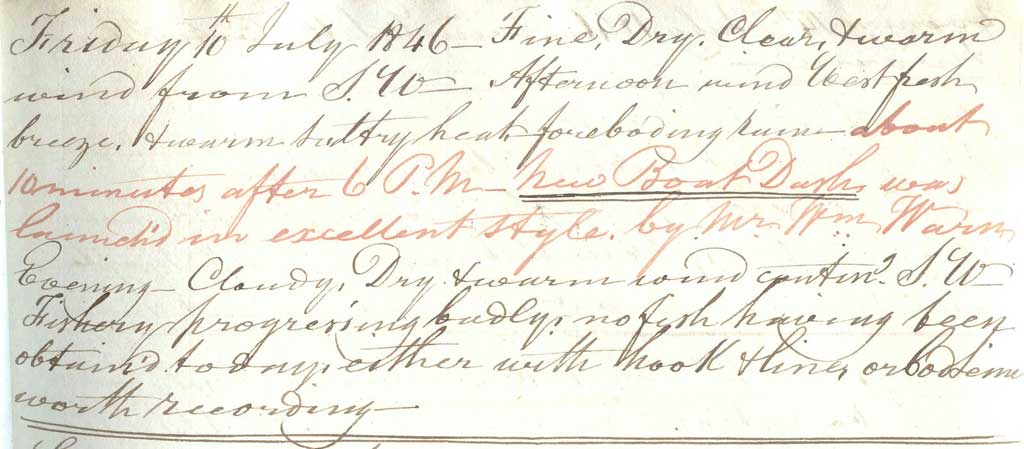 Friday 10th July 1846 – Fine, Dry. Clear, & warm
wind from S.W – Afternoon wind West fresh
breeze, & warm sultry heat, foreboding rain – about
10 minutes after 6 P.M – New Boat Dash, was
launch'd in excellent style, by Mr. Wm. Warn
Evening – Cloudy, Dry & warm wind contind. S.W –
Fishery progressing badly, no fish having been
obtain'd today, either with hook & line, or Codseine
worth recording –